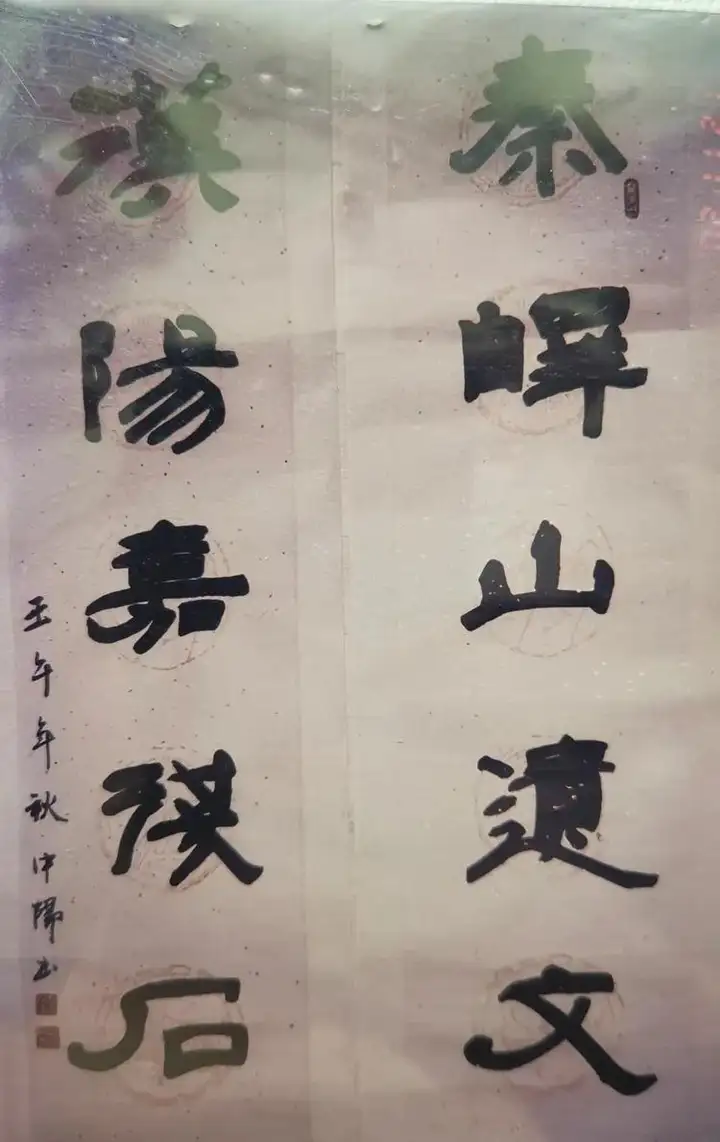 秦嶧山遺文
漢陽嘉殘石
壬午年秋中陽书